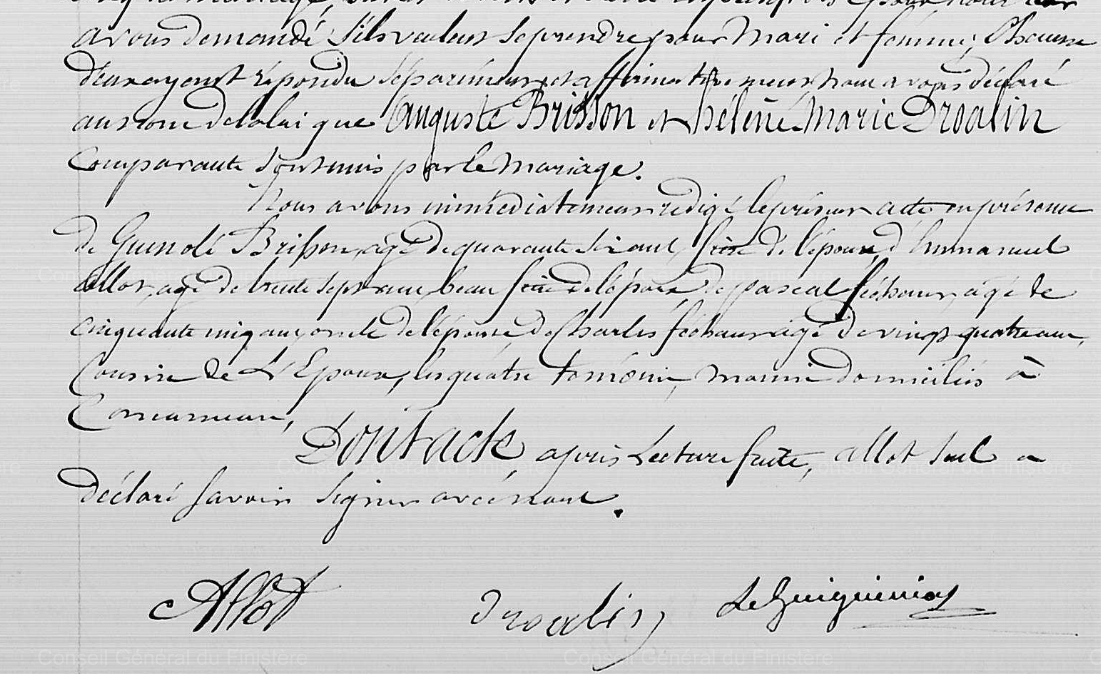 avons demandé s'ils veulent se prendre pour Mari et femme; Chacun
d'eux ayant répondu séparément et affirmativement nous avons déclaré
au nom de la loi que Auguste Brisson et hélène Marie Droalin
Comparants sont unis par le Mariage.
Nous avons immédiatement redigé le présent acte en présence
de Guénolé Brisson, agé de quarante six ans, frère de l'époux, d'Emmanuel
allot, agé de trente sept ans beau frère de l'époux, de pascal féchour, agé de
cinquante cinq ans, oncle de l'épouse de Charles féchour, agé de vingt quatre ans,
Cousin de L'Epoux, les quatre témoins, marins domiciliés à
Concarneau,
Dont acte après Lecture faite, allot seul a
déclaré savoir signer avec nous.
Allot Droalin Le Guiguinion
Conseil Général du Finistère Conseil Général du Finistère